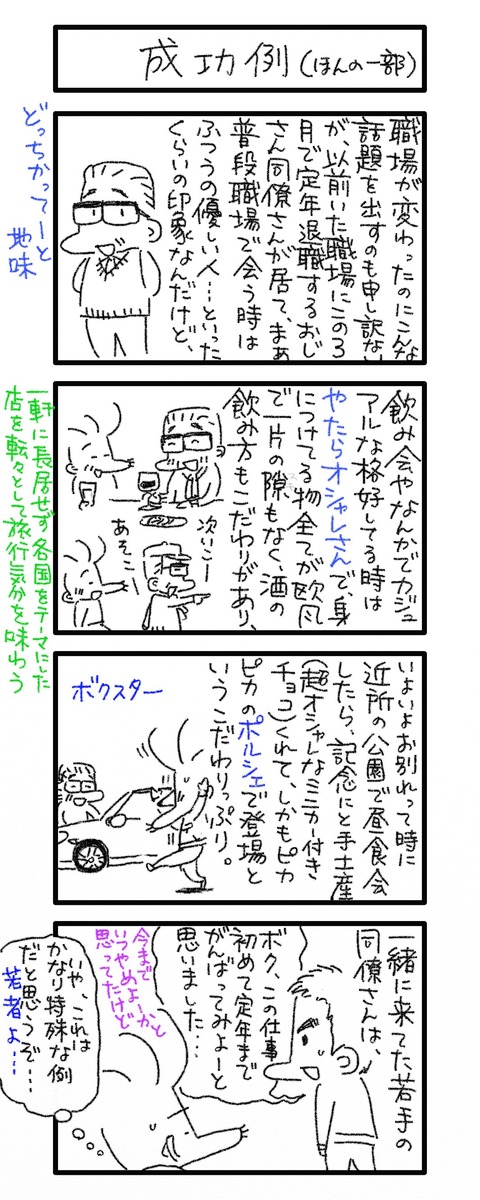 成功例(ほんの一部)
職場が変わったのにこんな
話題を出すのも申し訳ない
が、以前いた職場にこの3
月で定年退職するおじ
さん同僚さんが居て、まあ
普段職場で会う時は
ふつうの優しい人…といった
くらいの印象なんだけど、
どっちかってーと
地味
飲み会やなんかでカジュ
アルな格好してる時は
やたらオシャレさんで、身
につけてる物全てが欧風
で一片の隙もなく、酒の
飲み方もこだわりがあり、
次いこー
あそこー
一軒に長居せず各国をテーマにした
店を転々として旅行気分を味わう
いよいよお別れって時に
近所の公園で昼食会
したら、記念にと手土産
(超オシャレなミニカー付き
チョコ)くれて、しかもピカ
ピカのポルシェで登場と
いうこだわりっぷり。
ボクスター
一緒に来てた若手の
同僚さんは、
ボク、この仕事
初めて定年まで
がんばってみよーと
思いました…
今まで
いつやめよーかと
思ってたけど
いや、これは
かなり特殊な例
だと思うぞ…
若者よ…